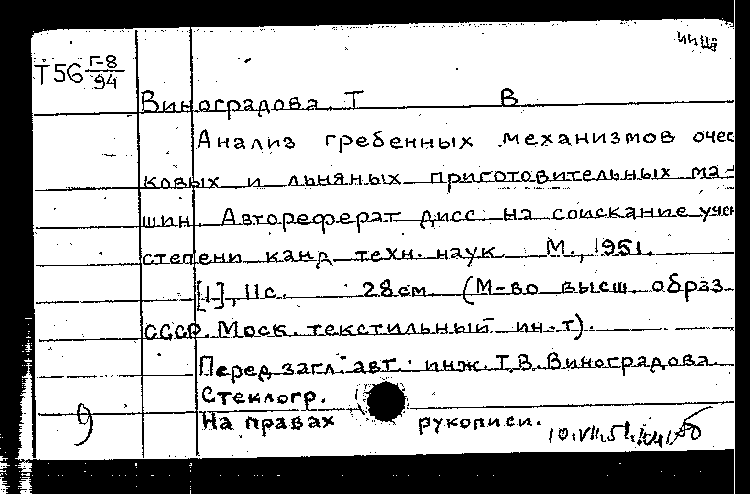 Т56 Г-8
94
Виноградова Т В
Анализ гребенных механизмов очес
ковых и льняных приготовительных ма-
шин. Автореферат дисс. на соискание учен
степени канд техн. наук М., 1951.
[1], 11с. 28см. (М-во высш. образ
СССР. Моск. текстильный ин-т).
Перед загл. авт.: инж. Т.В. Виноградова.
Стеклогр.
На правах рукописи.
9